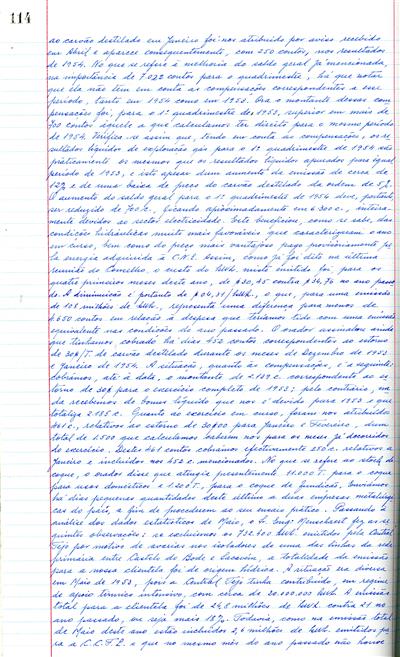 114
ao carvão destilado em Janeiro foi-nos atribuido por aviso recebido
em Abril e aparece consequentemente, com 250 contos, nos resultados
de 1954. No que se refere à melhoria do saldo geral já mencionada,
na importância de 7.072 contos para o quadrimestre, há que notar
que ela não tem em conta as compensações correspondentes a esse
período, tanto em 1954 como em 1953. Ora o montante dessas com-
pensações foi, para o 1º quadrimestre de 1953, superior em mais de
700 contos àquele a que calculamos ter direito para o mesmo período
de 1954. Verifica-se assim que, tendo em conta as compensações, os re-
sultados líquidos de exploração gás para o 1º quadrimestre de 1954 são
práticamente os mesmos que os resultados líquidos apurados para igual
período de 1953, e isto apesar dum aumento da emissão de cerca de
12% e de uma baixa de preço do carvão destilado da ordem de 5%.
O aumento do saldo geral para o 1º quadrimestre de 1954 deve, portanto,
ser reduzido de 700 c., ficando aproximadamente em 6.400 c., inteira-
mente devidos ao sector electricidade. Este beneficiou, como se sabe, das
condições hidráulicas muito mais favoráveis que caracterizaram o ano
em curso, bem como do preço mais vantajoso pago provisoriamente pe-
la energia adquirida à C.N.E. Assim, como já foi dito na última
reunião do Conselho, o custo do kWh. médio emitido foi, para os
quatro primeiros meses deste ano, de $30,45 contra $34,76 no ano passa-
do. A diminuição é portanto de $04,31/kWh., o que, para uma emissão
de 107 milhões de kWh., representa uma diferença para menos de
4.650 contos em relação à despesa que teríamos tido com uma emissão
equivalente nas condições do ano passado. O orador assinalou ainda
que tínhamos, cobrado há dias 452 contos correspondentes ao estorno
de 30$/T. de carvão destilado durante os meses de Dezembro de 1953
e Janeiro de 1954. A situação, quanto às compensações, é a seguinte:
cobrámos, até à data, o montante de 2.189 c. correspondente ao es-
torno de 30$ para o exercício completo de 1953; pelo contrário, na-
da recebemos do bonus líquido que nos é devido para 1953 e que
totaliza 2.135 c. Quanto ao exercício em curso, foram-nos atribuídos
461 c., relativos ao estorno de 30$00 para Janeiro e Fevereiro, dum
total de 1.500 que calculamos caberem-nos para os meses já decorridos
do exercício. Destes 461 contos cobrámos efectivamente 250 c., relativos a
Janeiro e incluídos nos 452 c. mencionados. No que se refere ao stock de
coque, o orador disse que atingia presentemente 11.000 T. para o coque
para usos domésticos e 1.120 T., para o coque de fundição. Enviámos
há dias pequenas quantidades deste último a duas empresas metalúrgi-
cas do país, a fim de procederem ao seu ensaio prático. Passando à
análise dos dados estatísticos de Maio, o Sr. Eng. Monschaert fez as se-
guintes observações: se excluirmos os 732.400 kWh. emitidos pela Central
Tejo por motivos de avarias nos isoladores de uma das linhas da rede
primária entre Castelo de Bode e Sacavém, a totalidade da emissão
para a nossa clientela foi de origem hídrica. A situação era diversa
em Maio de 1953, pois a Central Tejo tinha contribuído, em regime
de apoio térmico intensivo, com cerca de 20.000.000 kWh. A emissão
total para a clientela foi de 24,8 milhões de kWh. contra 21 no
ano passado, ou seja mais 18%. Todavia, como na emissão total
de Maio deste ano estão incluídos 2,4 milhões de kWh. emitidos pa-
ra a C.C.F.L. e que no mesmo mês do ano passado não houve